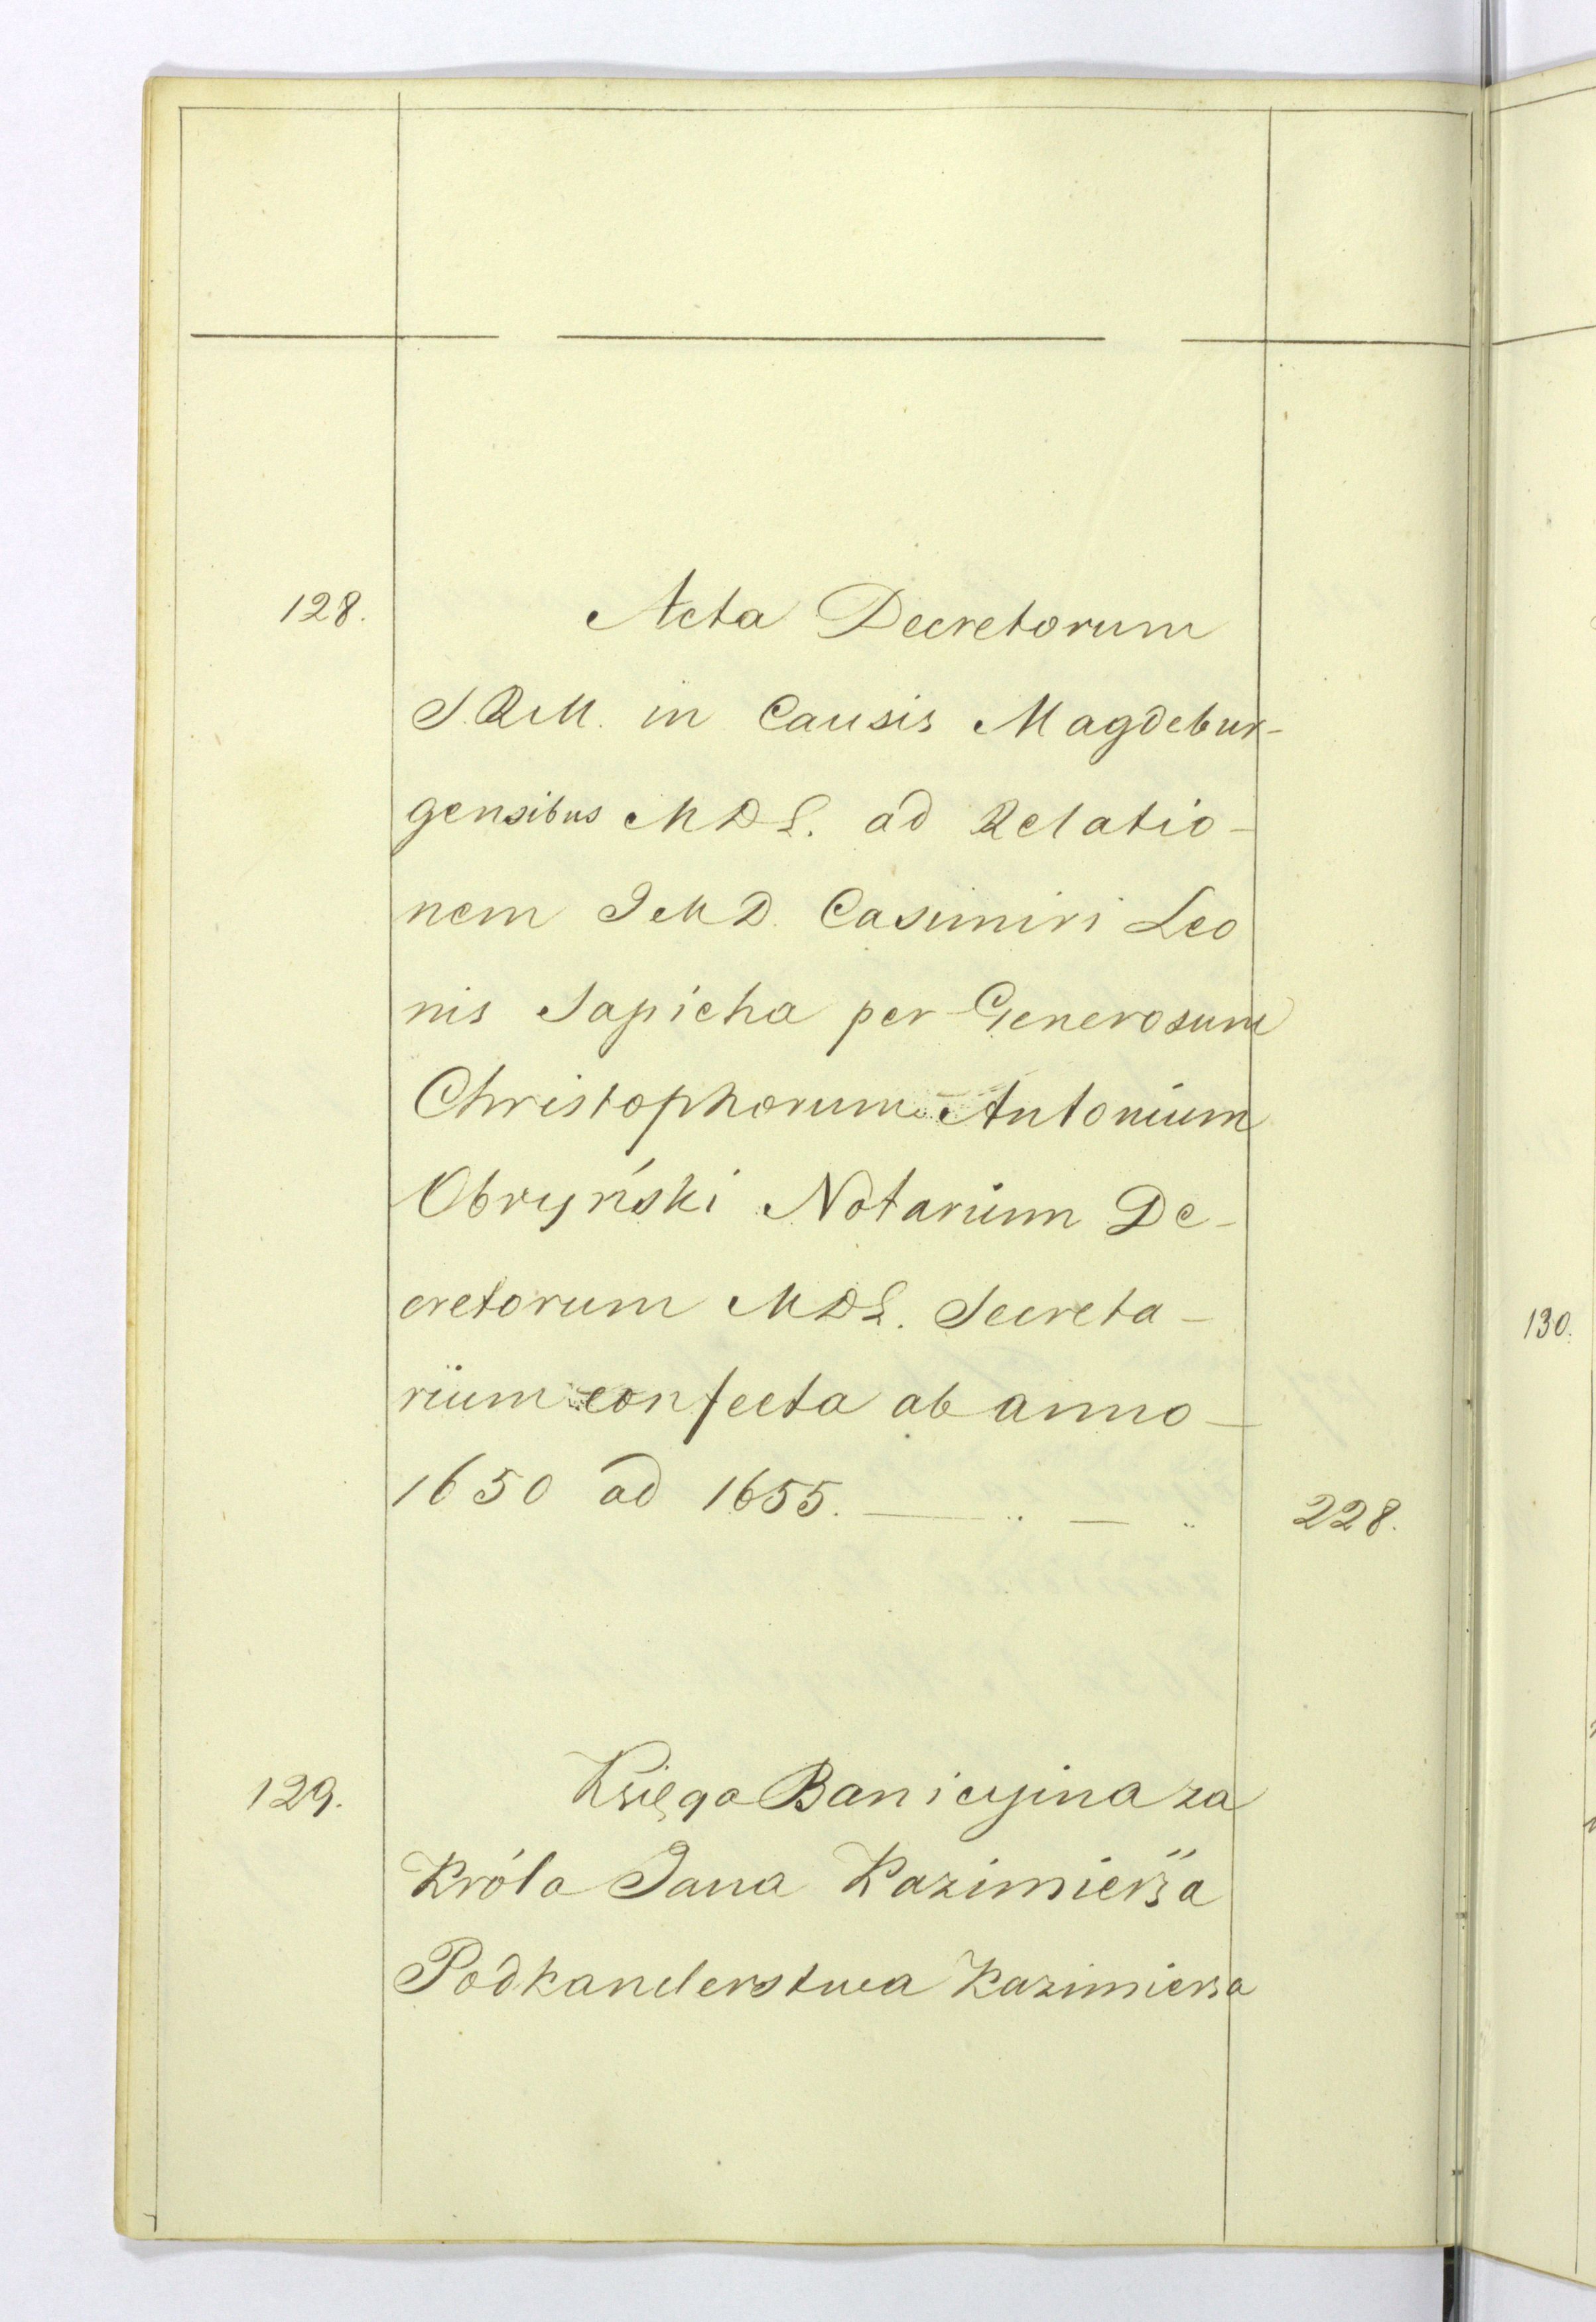 128. Acta Decretorum
S.R.M. in Causis Magdebur-
gensibus MDL. ad Relatio-
nem IMD. Casimiri Leo
nis Sapieha per Generosum
Christophorum Antonium
Obryński Notarium De-
cretorum MDL. Secreta-
rium confecta ab anno
1650 ad 1655. — .. — .. 228.
129. Księga Banicyjna za
Króla Jana Kazimierza
Podkanclerstwa Kazimierza
130.